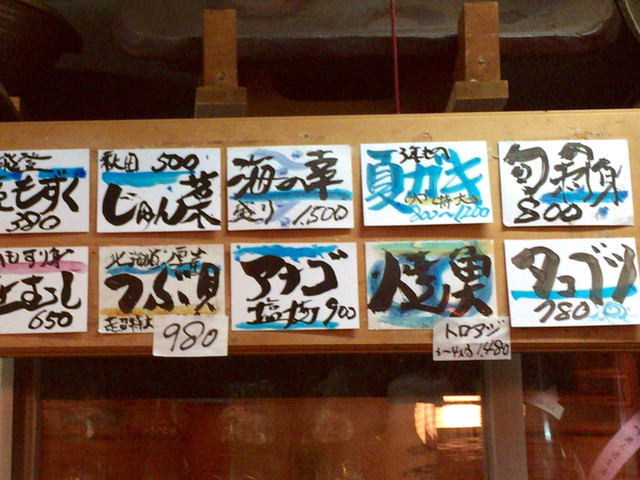 能登
もずく
380
秋田 500
じゅん菜
海の幸
盛り 1,500
3年もの
夏ガキ
大~特大
800~1200
旬 刺身
800
650
北海道産
つぶ貝
超特大
980
アナゴ
塩焼 900
トロアジ
1,480
タコブツ
780